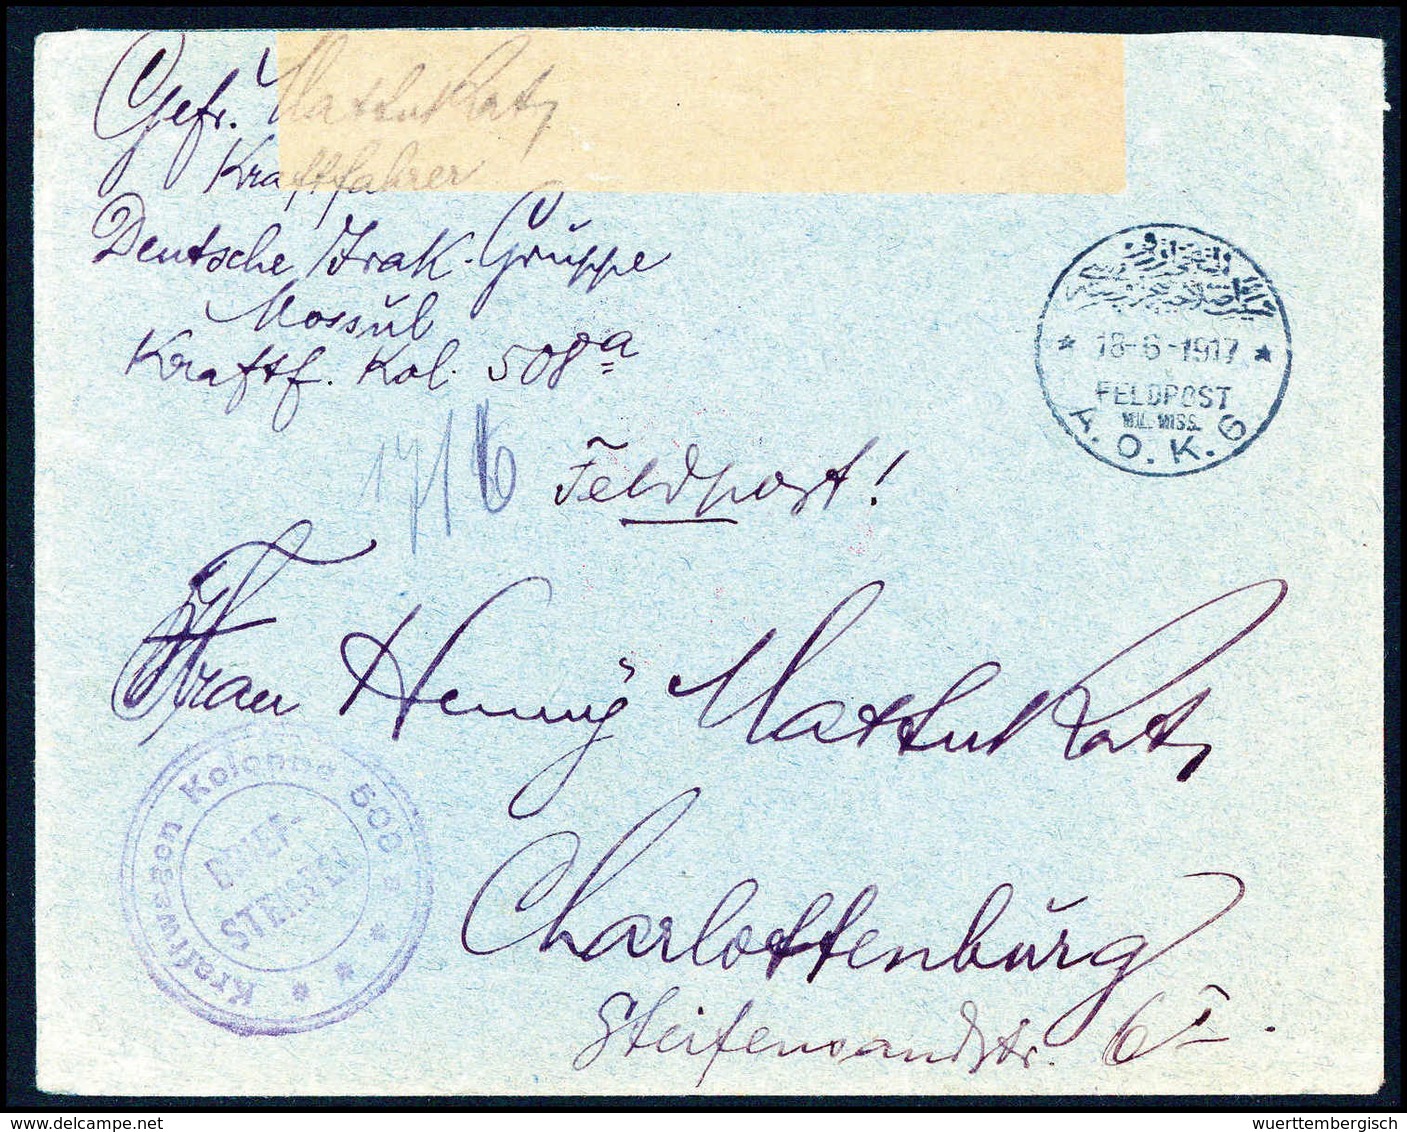 Gefr. Mattukatz
Kraftfahrer
Deutsche Irak-Gruppe
Mossul
Kraftf. Kol. 508a
* 18-6-1917 *
FELDPOST
MIL. MISS.
A. O. K. 6
17/6
Feldpost!
Frau Henny Mattukatz
Charlottenburg
Steifensandstr. 6 I.
Kraftwagen Kolonne 508 * * * * *
BRIEF-
STEMPEL
wuerttembergisch